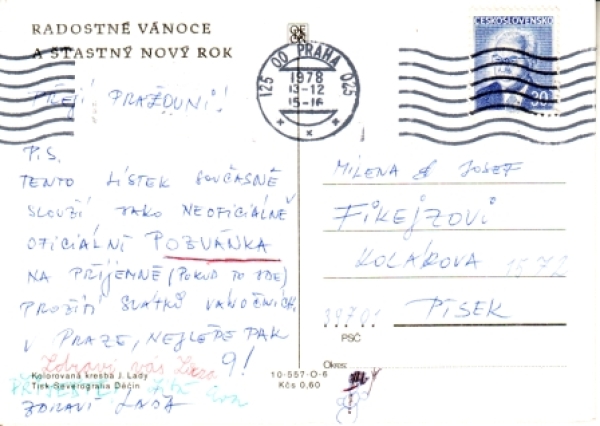 RADOSTNÉ VÁNOCE
A ŠŤASTNÝ NOVÝ ROK
PŘEJÍ
P.S.
TENTO LÍSTEK SOUČASNĚ
SLOUŽÍ JAKO NEOFICIÁLNĚ
OFICIÁLNÍ POZVÁNKA
NA PŘÍJEMNÉ (POKUD TO JDE)
PROŽITÍ SVÁTKŮ VÁNOČNÍCH
V PRAZE, NEJLÉPE PAK
9!
Zdraví vás
Kolorovaná kresba J. Lady
Tisk-Severografia Děčín
ZDRAVÍ LAĎA
10-557-O-6
Kčs 0,60
125 00 PRAHA 025
1978
13-12
15-16
ČESKOSLOVENSKO
30
MILENA & JOSEF
FIKEJZOVI
KOLÁROVA 1572
PÍSEK
39701
PSČ
Okres: